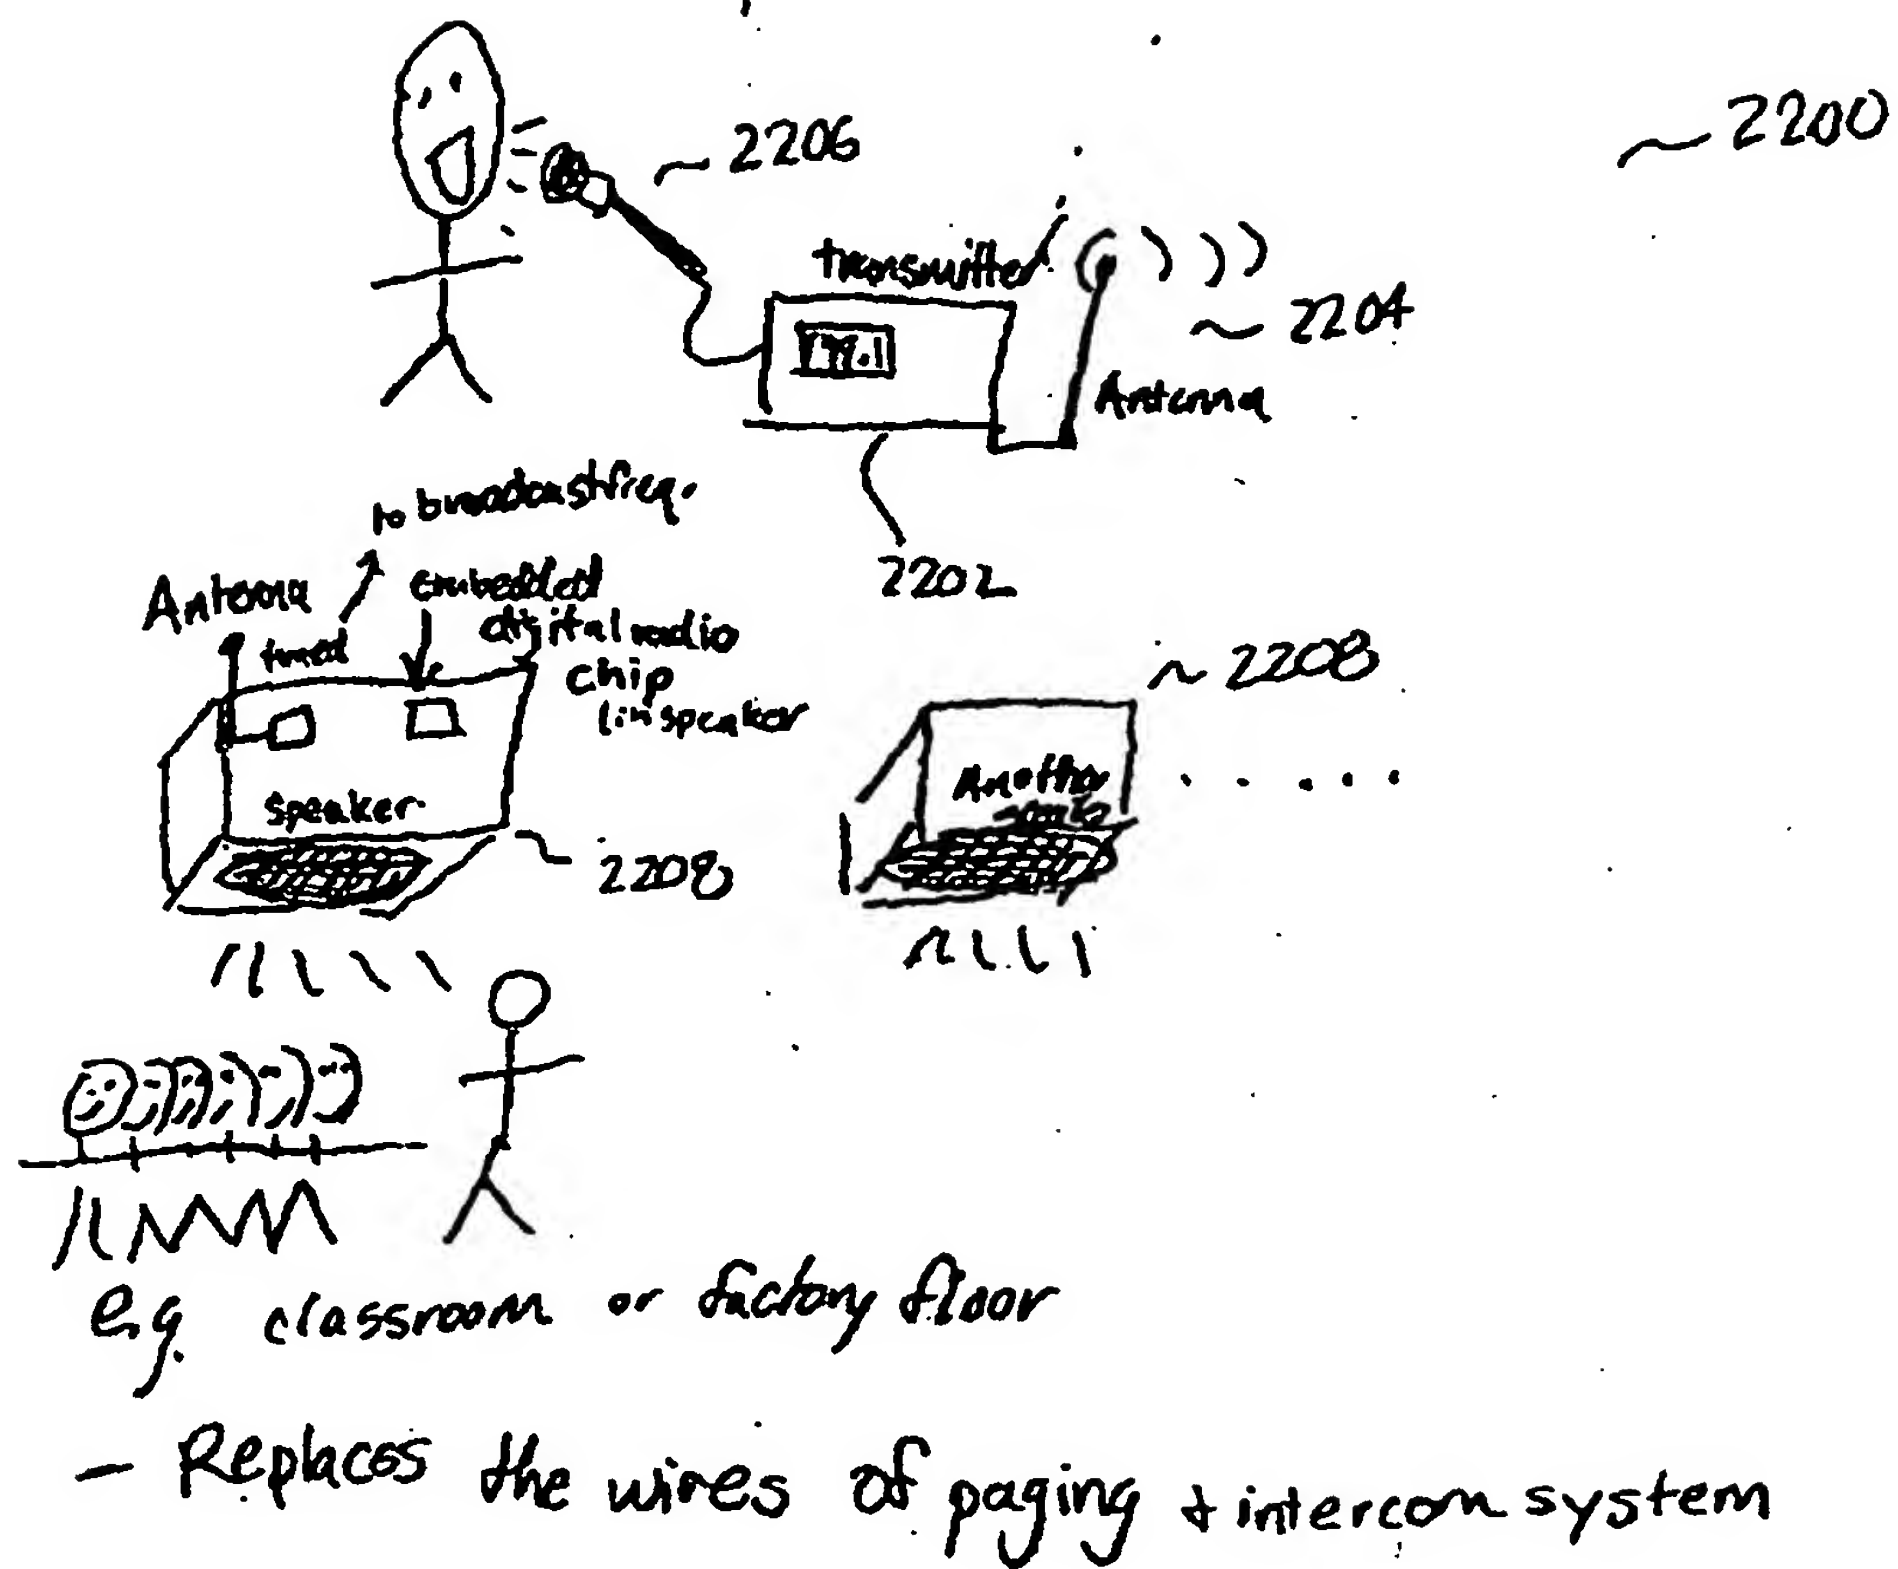 2206
2200
transmitter
2204
99.1
Antenna
2202
to broadcast freq.
Antenna
tuned
embedded
digital radio
chip
in speaker
speaker
2208
2208
Another
e.g. classroom or factory floor
- Replaces the wires of paging + intercom system